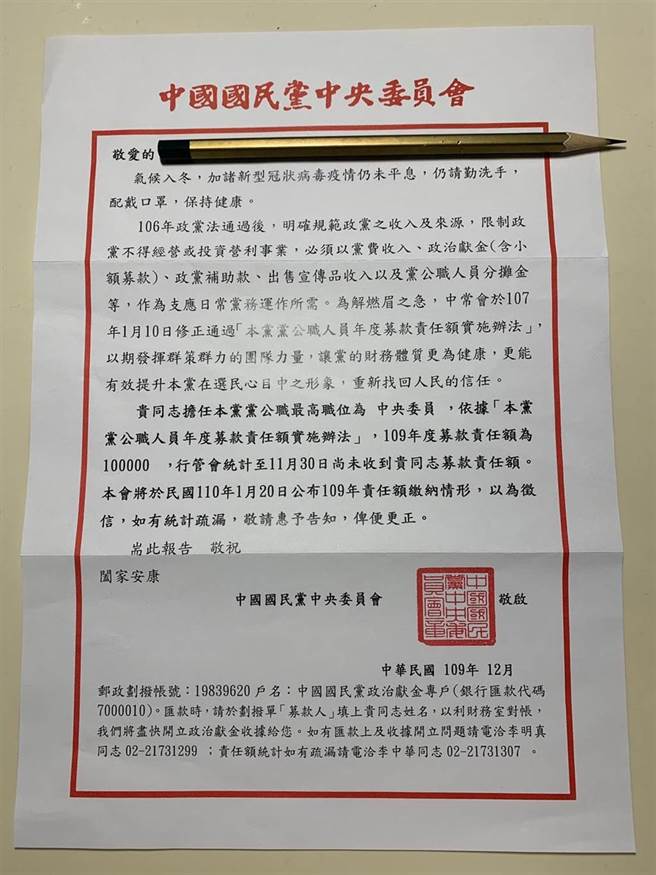 中國國民黨中央委員會
敬愛的
氣候入冬，加諸新型冠狀病毒疫情仍未平息，仍請勤洗手，
配戴口罩，保持健康。
106年政黨法通過後，明確規範政黨之收入及來源，限制政
黨不得經營或投資營利事業，必須以黨費收入、政治獻金(含小
額募款)、政黨補助款、出售宣傳品收入以及黨公職人員分攤金
等，作為支應日常黨務運作所需。為解燃眉之急，中常會於107
年1月10日修正通過「本黨黨公職人員年度募款責任額實施辦法」，
以期發揮群策群力的團隊力量，讓黨的財務體質更為健康，更能
有效提升本黨在選民心目中之形象，重新找回人民的信任。
貴同志擔任本黨黨公職最高職位為 中央委員 ，依據「本黨
黨公職人員年度募款責任額實施辦法」，109年度募款責任額為
100000 ，行管會統計至11月30日尚未收到貴同志募款責任額。
本會將於民國110年1月20日公布109年責任額繳納情形，以為徵
信，如有統計疏漏，敬請惠予告知，俾便更正。
耑此報告 敬祝
闔家安康
中國國民黨中央委員會 敬啟
中國國民
黨中央委
員會章
中華民國 109年 12月
郵政劃撥帳號：19839620戶名：中國國民黨政治獻金專戶(銀行匯款代碼
7000010)。匯款時，請於劃撥單「募款人」填上貴同志姓名，以利財務室對帳，
我們將盡快開立政治獻金收據給您。如有匯款上及收據開立問題請電洽李明真
同志 02-21731299 ；責任額統計如有疏漏請電洽李中華同志 02-21731307 。